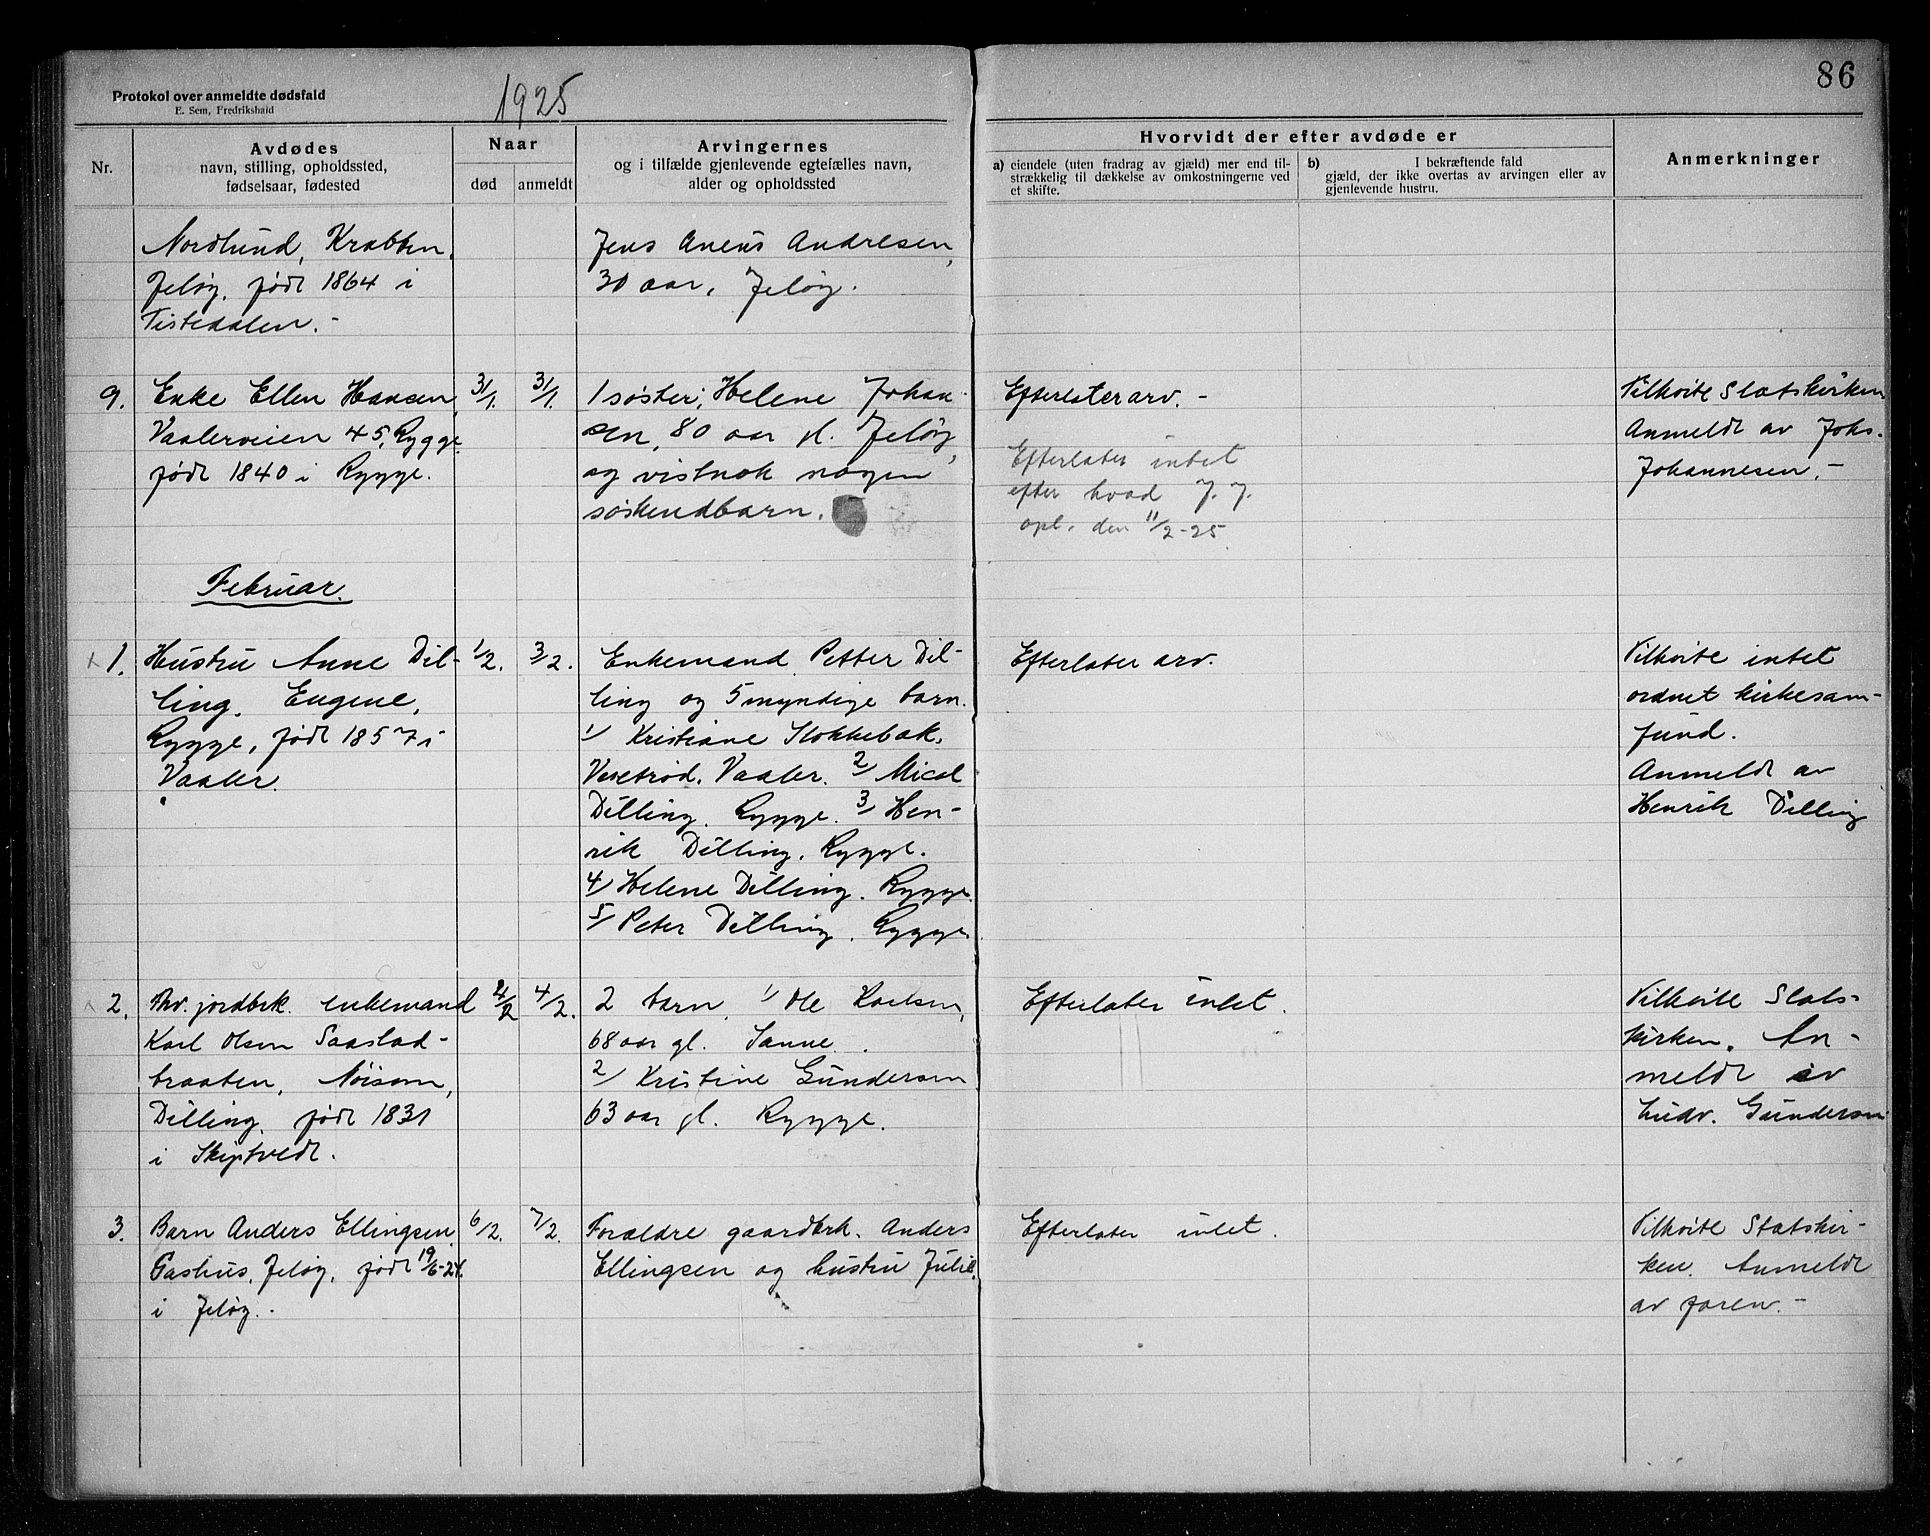 86
Protokol over anmeldte dødsfald
E. Sem, Fredrikshald
1925
Nr.
Avdødes
navn, stilling, opholdssted,
fødselsaar, fødested
Naar
død
anmeldt
Arvingernes
og i tilfælde gjenlevende egtefælles navn,
alder og opholdssted
Hvorvidt der efter avdøde er
a) eiendele (uten fradrag av gjæld) mer end til-
strækkelig til dækkelse av omkostningerne ved
et skifte.
b) I bekræftende fald
gjæld, der ikke overtas av arvingen eller av
gjenlevende hustru.
Anmerkninger
Nordlund, Krabben,
Jeløy, født 1864 i
Tistedalen. -
Jens Aneus Andresen,
30 aar, Jeløy.
9.
Enke Ellen Hansen,
Vaalerveien 45, Rygge
født 1840 i Rygge.
31/1.
31/1.
1 søster, Helene Johan-
sen, 80 aar gl. Jeløy,
og vistnok nogen
søskendbarn.
Efterlater arv. -
Efterlater intet
efter hvad J. J.
opl. den 11/2-25.
Tilhørte Statskirken
Anmeldt av Johs.
Johannesen. -
Februar.
x 1.
Hustru Anne Dil-
ling, Eugene,
Rygge, født 1857 i
Vaaler.
1/2.
3/2.
Enkemand Petter Dil-
ling og 5 myndige barn.
1/ Kristiane Stokkebak,
Vaaler. 2/ Mical
Dilling, Rygge. 3/ Hen-
rik Dilling, Rygge.
4/ Helene Dilling, Rygge.
5/ Peter Dilling, Rygge.
Efterlater arv.
Tilhørte intet
ordnet kirkesam-
fund.
Anmeldt av
Henrik Dilling
x 2.
Fhv. jordbrk. enkemand
Karl Olsen Saastad-
braaten, Nøisom,
Dilling, født 1831
i Skiptvedt.
2/2
4/2.
2 barn, 1/ Ole Karlsen,
68 aar gl. Sanne.
2/ Kristine Gundersen
63 aar gl. Rygge.
Efterlater intet.
Tilhørte Stats-
kirken. An-
meldt av
Ludv. Gundersen
3.
Barn Anders Ellingsen,
Gashus, Jeløy, født 19/6-24.
i Jeløy. -
6/2.
7/2.
Forældre gaardbrk. Anders
Ellingsen og hustru Julie.
Efterlater intet.
Tilhørte Statskir-
ken. Anmeldt
av faren. -